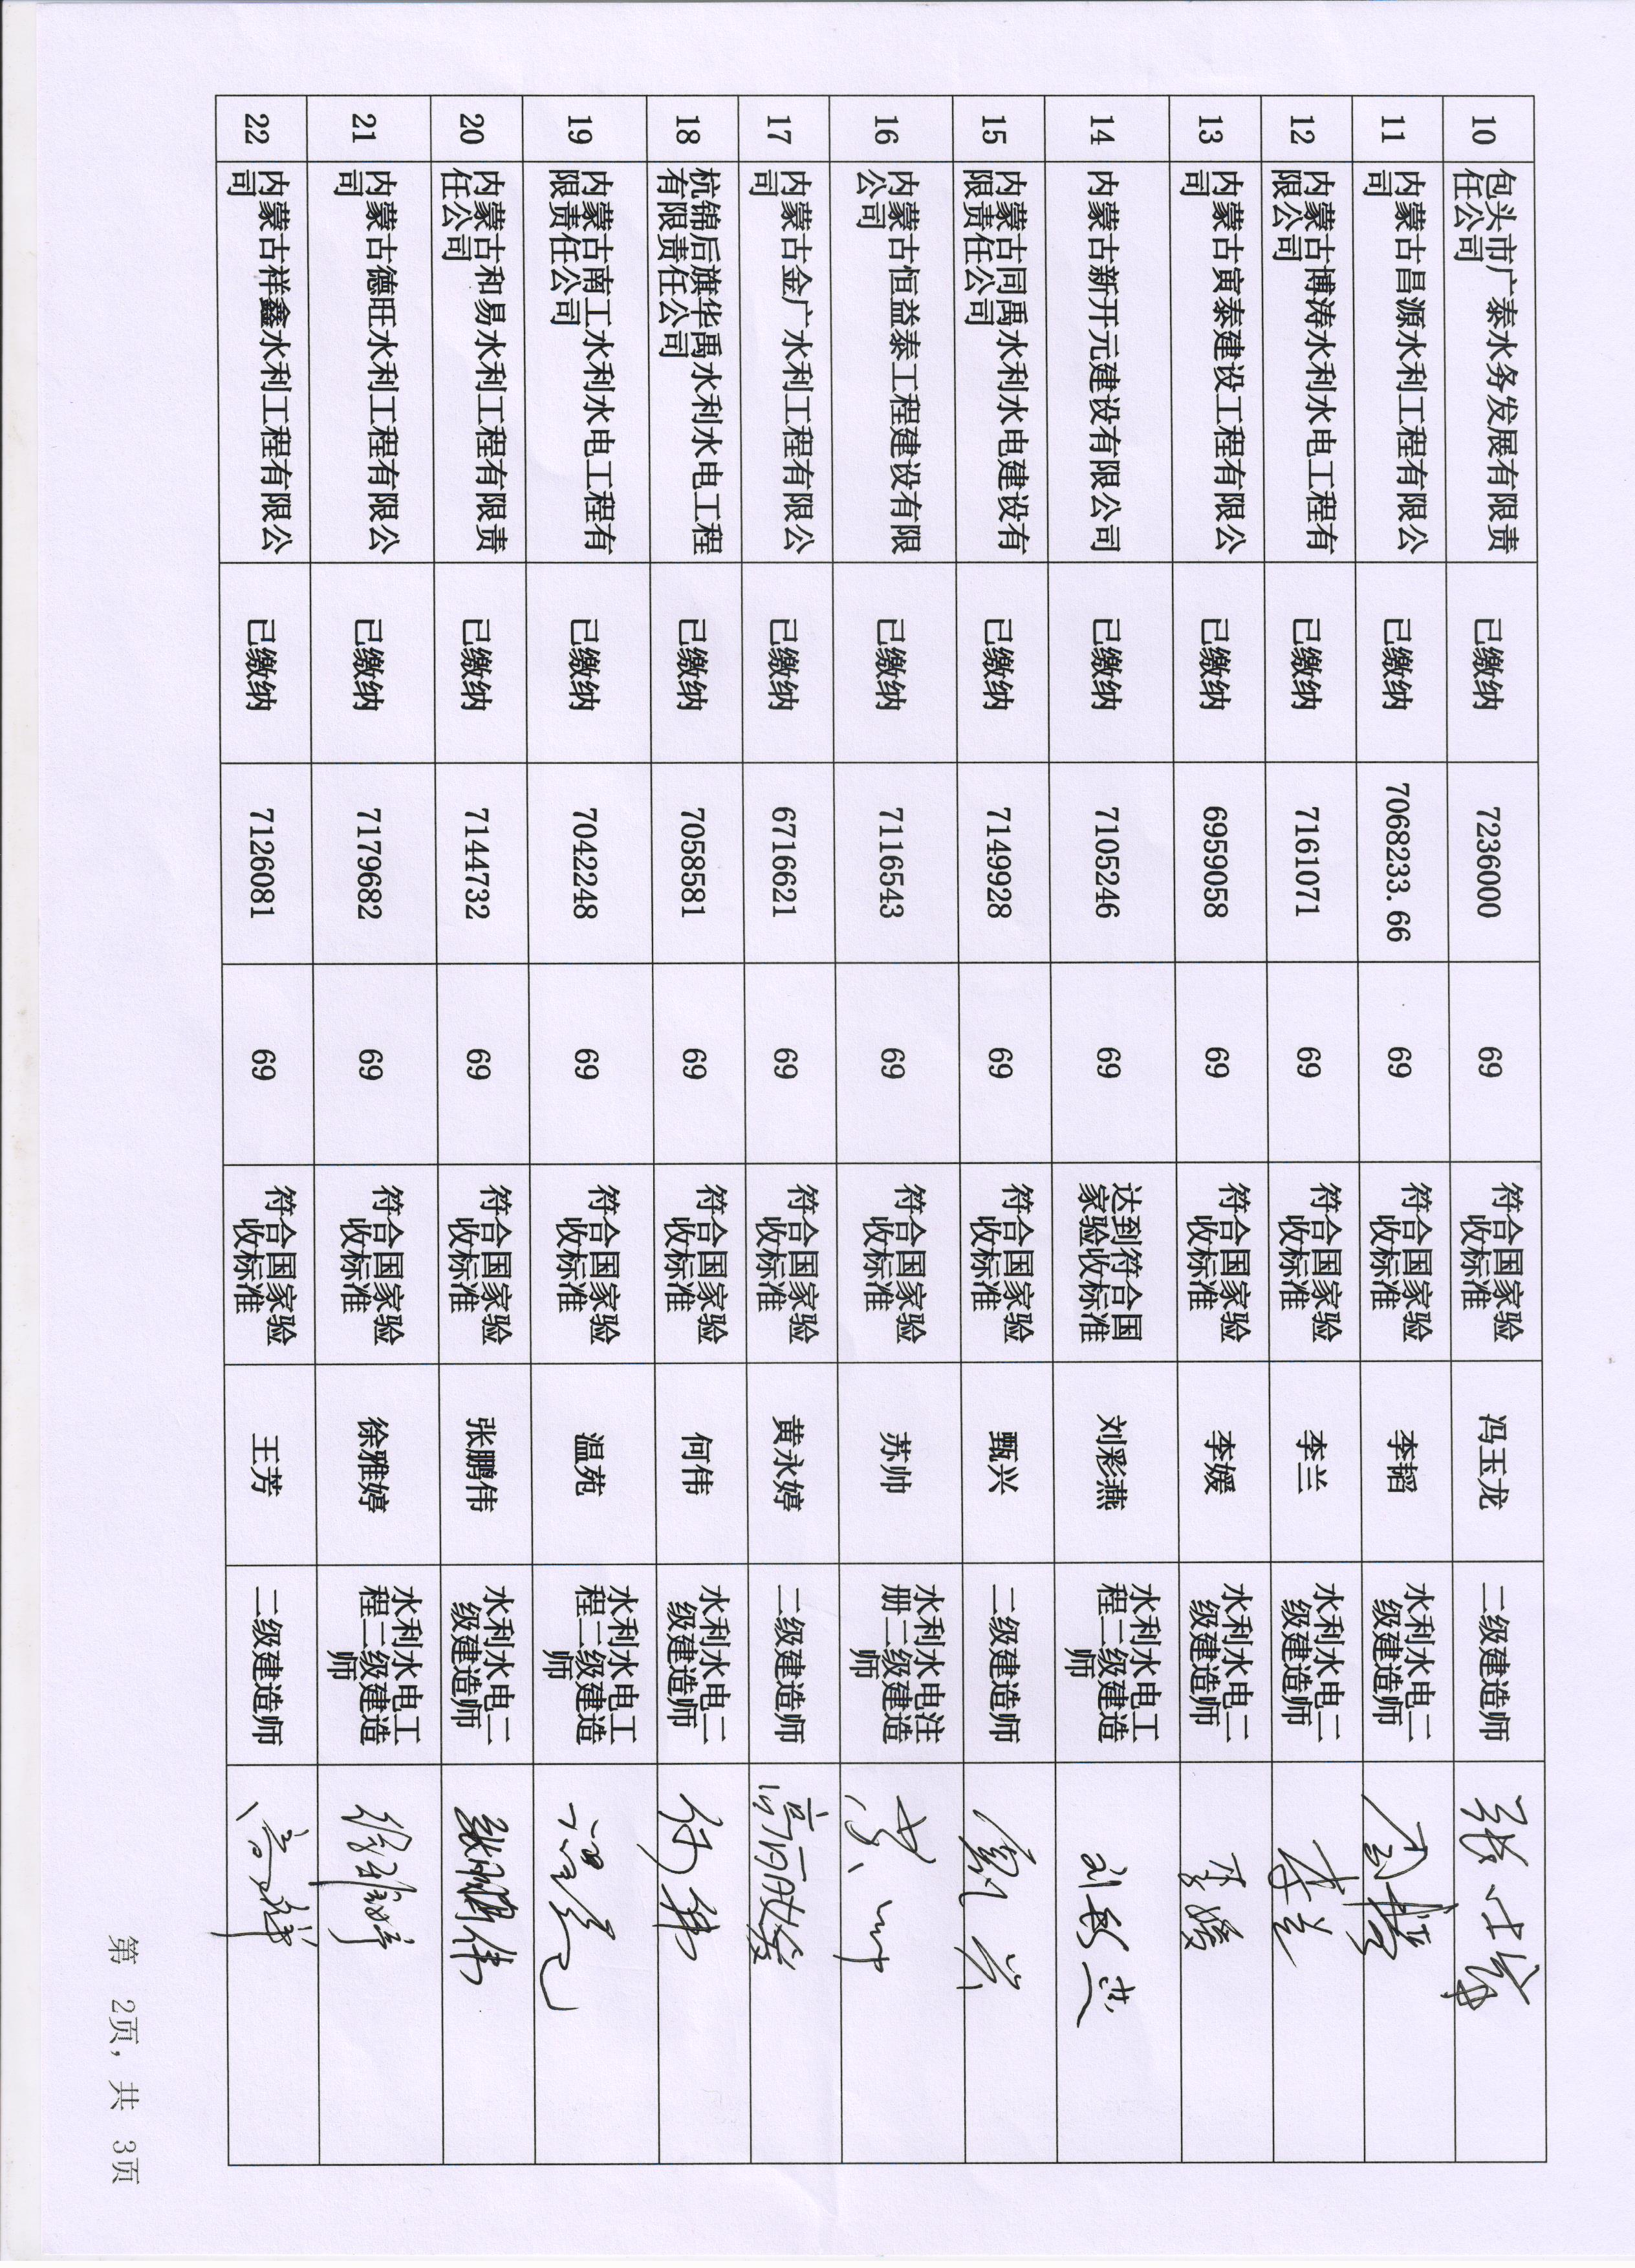 10 包头市广泰水务发展有限责任公司 已缴纳 7236000 69 符合国家验收标准 冯玉龙 二级建造师
11 内蒙古昌源水利工程有限公司 已缴纳 7068233.66 69 符合国家验收标准 李韬 水利水电二级建造师
12 内蒙古博涛水利水电工程有限公司 已缴纳 7161071 69 符合国家验收标准 李兰 水利水电二级建造师 李兰
13 内蒙古寅泰建设工程有限公司 已缴纳 6959058 69 符合国家验收标准 李媛 水利水电二级建造师 李媛
14 内蒙古新开元建设有限公司 已缴纳 7105246 69 达到符合国家验收标准 刘彩燕 水利水电工程二级建造师
15 内蒙古同禹水利水电建设有限责任公司 已缴纳 7149928 69 符合国家验收标准 甄兴 二级建造师 甄兴
16 内蒙古恒益泰工程建设有限公司 已缴纳 7116543 69 符合国家验收标准 苏帅 水利水电注册二级建造师 苏帅
17 内蒙古金广水利工程有限公司 已缴纳 6716621 69 符合国家验收标准 黄永婷 二级建造师
18 杭锦后旗华禹水利水电工程有限责任公司 已缴纳 7058581 69 符合国家验收标准 何伟 水利水电二级建造师 何伟
19 内蒙古南工水利水电工程有限责任公司 已缴纳 7042248 69 符合国家验收标准 温苑 水利水电工程二级建造师 温苑
20 内蒙古和易水利工程有限责任公司 已缴纳 7144732 69 符合国家验收标准 张鹏伟 水利水电二级建造师 张鹏伟
21 内蒙古德旺水利工程有限公司 已缴纳 7179682 69 符合国家验收标准 徐雅婷 水利水电工程二级建造师 徐雅婷
22 内蒙古祥鑫水利工程有限公司 已缴纳 7126081 69 符合国家验收标准 王芳 二级建造师
第 2页，共 3页